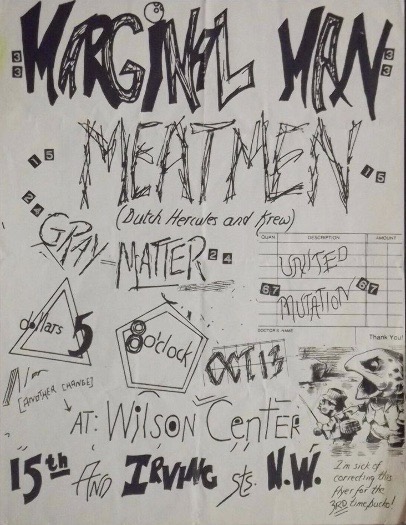 MARGINAL MAN
33 33
MEATMEN
15 15
(Dutch Hercules and Krew)
24 GRAY MATTER 24
QUAN. DESCRIPTION AMOUNT
UNITED
67 67
MUTATION
DOCTOR'S NAME Thank You!
dollars 5
8 o'clock
OCT. 13
[ANOTHER CHANGE]
AT: WILSON CENTER
15th AND IRVING sts. N.W.
I'm sick of
correcting this
flyer for the
3RD time, Sucko!